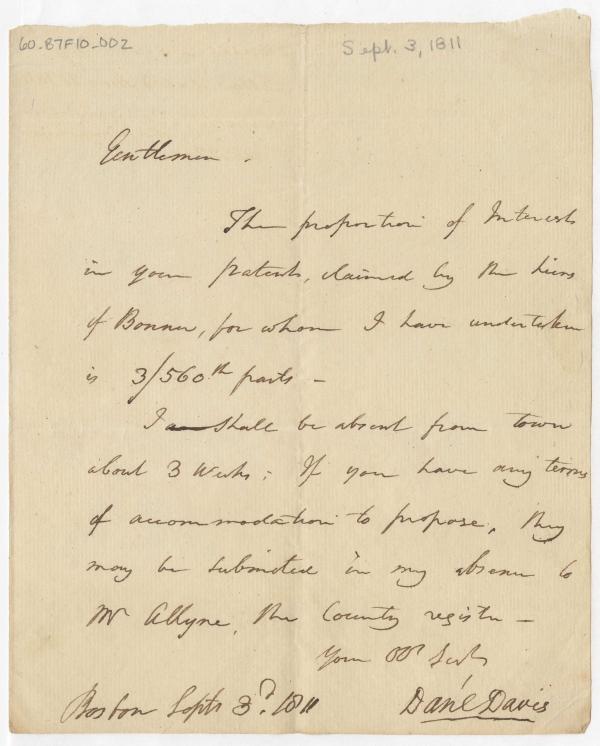 60-87F10_002
Sept. 3, 1811
Gentlemen.
The proportion of Interests
in your patents, claimed by the heirs
of Bonner, for whom I have undertaken
is 3/560th parts —
I shall be absent from town
about 3 weeks; If you have any terms
of accommodation to propose, they
may be submitted in my absence to
Mr Allyne, the County register —
Your
Boston Septr 3d. 1811
Danl Davis